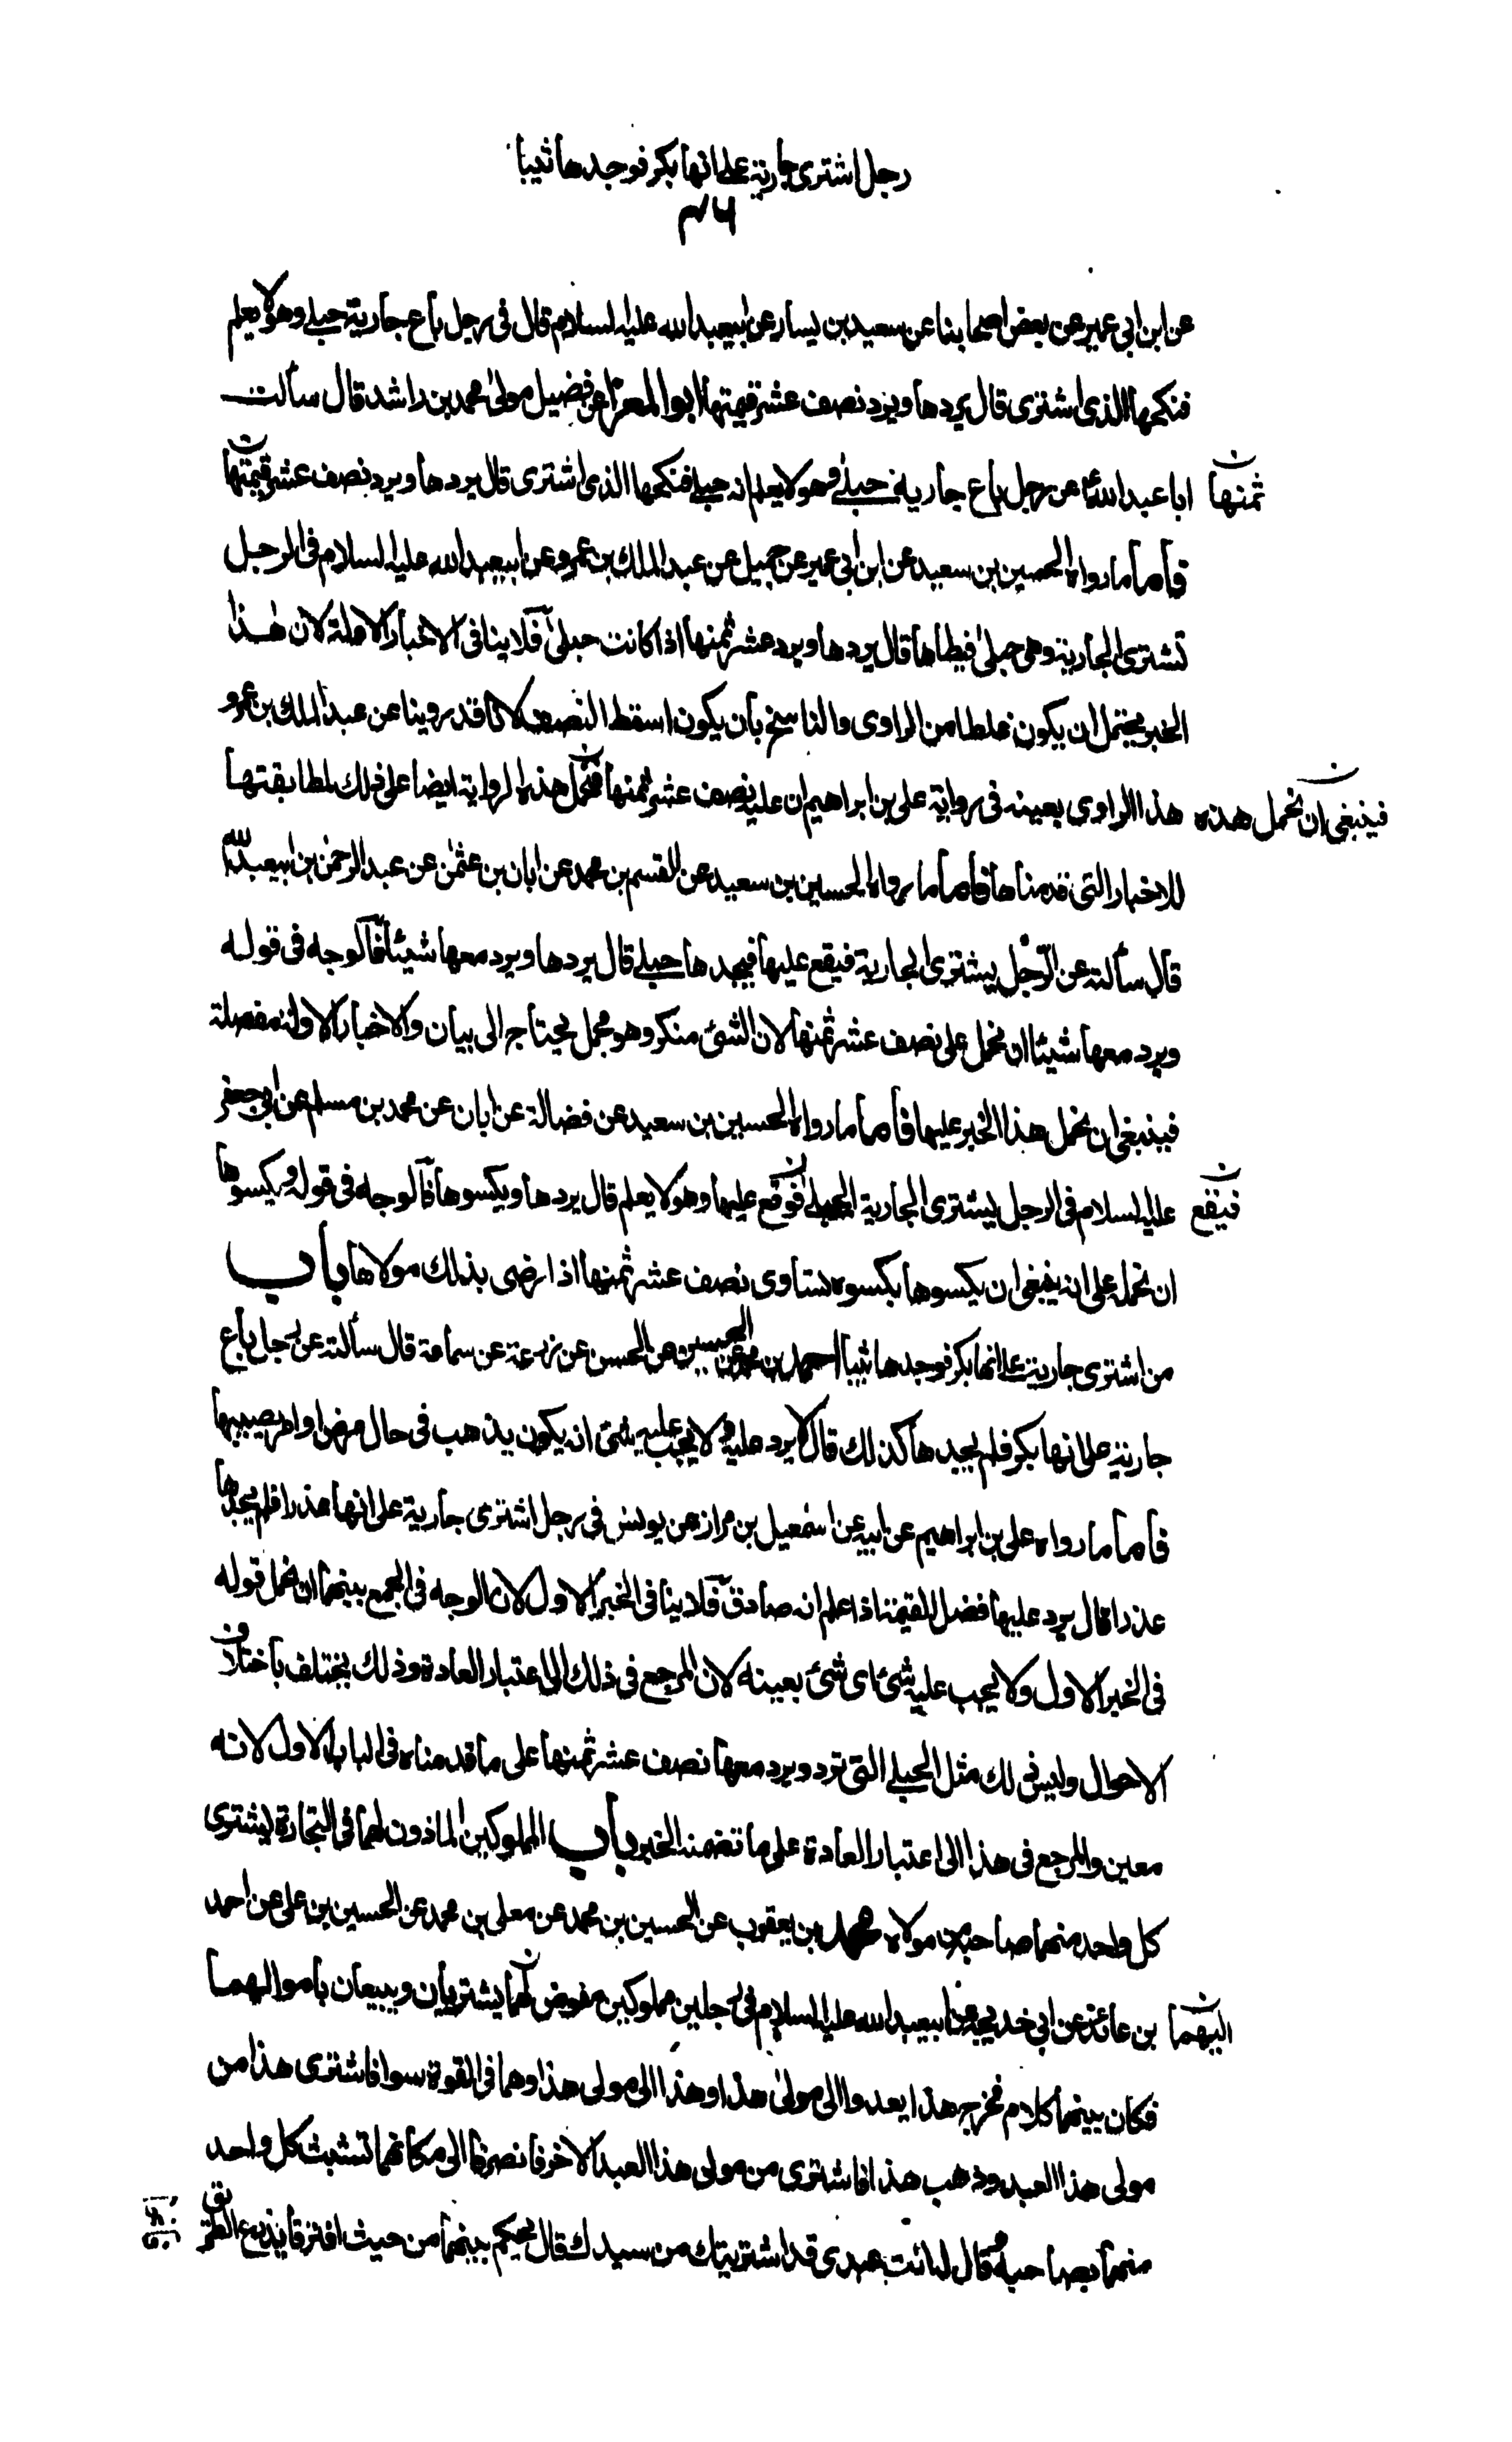 رجل اشترى جارية على انها بكر فوجدها ثيبا
عن ابن ابي عمير عن بعض اصحابنا عن سعيد بن يسار عن ابيعبد الله عليه السلام قال فى رجل باع جارية حبلى وهو لا يعلم
فنكحها الذى اشترى قال يردها ويرد نصف عشر قيمتها ابو المعزا عن فضيل مولى محمد بن راشد قال سألت
ثمنها ابا عبد الله ع عن رجل باع جارية حبلى وهو لا يعلم انه حبلى فنكحها الذى اشترى قال يردها ويرد نصف عشر قيمتها
فأما ما رواه الحسين بن سعيد عن ابن ابى عمير عن جميل عن عبد الملك بن عمرو عن ابيعبد الله عليه السلام فى الرجل
تشترى الجارية وهى حبلى فيطأها قال يردها ويرد عشر ثمنها اذا كانت حبلى فلا ينافى الاخبار الاولة لان هذا
الخبر يحتمل ان يكون غلطا من الراوى والناسخ بأن يكون اسقط النصف لانا قد روينا عن عبد الملك بن عمرو
فينبغى ان نحمل هذه هذا الراوى بعينه فى رواية على بن ابراهيم ان عليه نصف عشر ثمنها فنحمل هذه الرواية ايضا على ذلك لمطابقتها
للاخبار التى قدمناها فأما ما رواه الحسين بن سعيد عن القسم بن محمد عن ابان بن عثمن عن عبد الرحمن بن ابيعبد الله
قال سألته عن الرجل يشترى الجارية فيقع عليها فيجدها حبلى قال يردها ويرد معها شيئا فالوجه فى قوله
ويرد معها شيئا ان نحمل على نصف عشر ثمنها لان الشئ منكر وهو مجمل يحتاج الى بيان والاخبار الاولة مفصلة
فينبغى ان نحمل هذا الخبر عليها فأما ما رواه الحسين بن سعيد عن فضالة عن ابان عن محمد بن مسلم عن ابى جعفر
فيقع عليه السلام فى الرجل يشترى الجارية الحبلى فوقع عليها وهو لا يعلم قال يردها ويكسوها فالوجه فى قوله ويكسوها
ان نحمله على انه ينبغى ان يكسوها بكسوه تساوى نصف عشر ثمنها اذا رضى بذلك مولاها باب
من اشترى جارية على انها بكر فوجدها ثيبا احمد بن محمد عن الحسين عن الحسن عن زرعة عن سماعة قال سألته عن رجل باع
جارية على انها بكر فلم يجدها كذلك قال لا يرد عليه ولا يجب عليه شئ انه يكون يذهب فى حال مرض او امر يصيبها
فأما ما رواه على بن ابراهيم عن ابيه عن اسمعيل بن مرار عن يونس فى رجل اشترى جارية على انها عذرا فلم يجدها
عذرا قال يرد عليها فضل القيمة اذا علم انه صادق فلا ينافى الخبر الاول لان الوجه فى الجمع بينهما ان نحمل قوله
فى الخبر الاول ولا يجب عليه شئ اى شئ بعينه لان المرجع فى ذلك الى اعتبار العادة وذلك يختلف باختلاف
الاحوال وليس ذلك مثل الحبلى التى ترد ويرد معها نصف عشر ثمنها على ما قدمناه فى الباب الاول لانه
معين والمرجع فى هذا الى اعتبار العادة على ما تضمنه الخبر باب المملوكين الماذون لهما فى التجارة يشترى
كل واحد منهما صاحبه من مولاه محمد بن يعقوب عن الحسين بن محمد عن معلى بن محمد عن الحسين بن على عن احمد
اليهما بن عائذ عن ابى خديجة عن ابيعبد الله عليه السلام فى رجلين مملوكين مفوض لهما يشتريان ويبيعان باموالهما
فكان بينهما كلام فخرج هذا يعدوا الى مولى هذا وهذا الى مولى هذا وهما فى القوة سوا فاشترى هذا من
مولى هذا العبد وذهب هذا فاشترى من مولى هذا العبد الاخر فانصرفا الى مكانهما تشبث كل واحد
منهما بصاحبه وقال له انت عبدى قد اشتريتك من سيدك قال يحكم بينهما من حيث افترقا يذرع الطريق